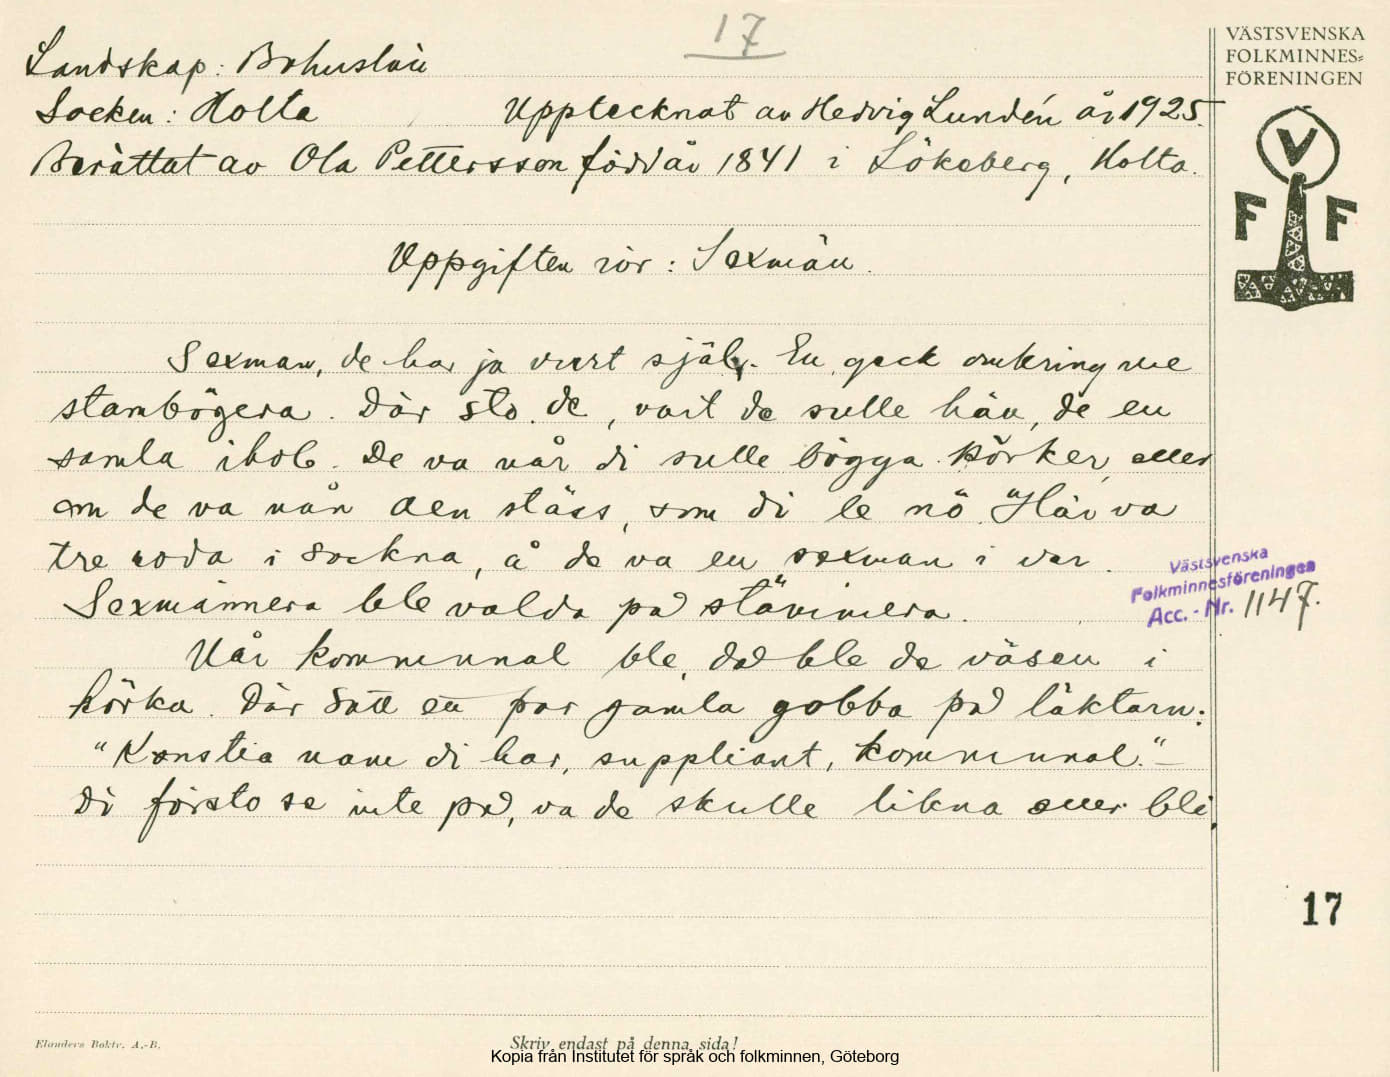 17
VÄSTSVENSKA
FOLKMINNES=
FÖRENINGEN
V
F F
Landskap: Bohuslän
Socken: Holta Upptecknat av Hedvig Lundén år 1925.
Berättat av Ola Pettersson född år 1841 i Lökeberg, Holta.
Uppgiften rör: Sexmän.
Sexman, de har ja vurt själv. En geck omkring me
stambögera. Där sto de, vait de sulle hän, de en
samla ihob. De va når di sulle bögga körker, eller
om de va nån aen stäss, som di le nö. Här va
tre roda i sockna, å de va en sexman i var.
Sexmännera ble valda på stämmera.
Når kommunal ble, då ble de väsen i
körka. Där satt ett par gamla gobba på läktarn:
"Konstia namn di har, suppliant, kommunal." –
Di försto se inte på, va de skulle likna eller bli.
Västsvenska
Folkminnesföreningen
Acc. - Nr. 1147.
17
Elanders Boktr. A.-B.
Skriv endast på denna sida!
Kopia från Institutet för språk och folkminnen, Göteborg